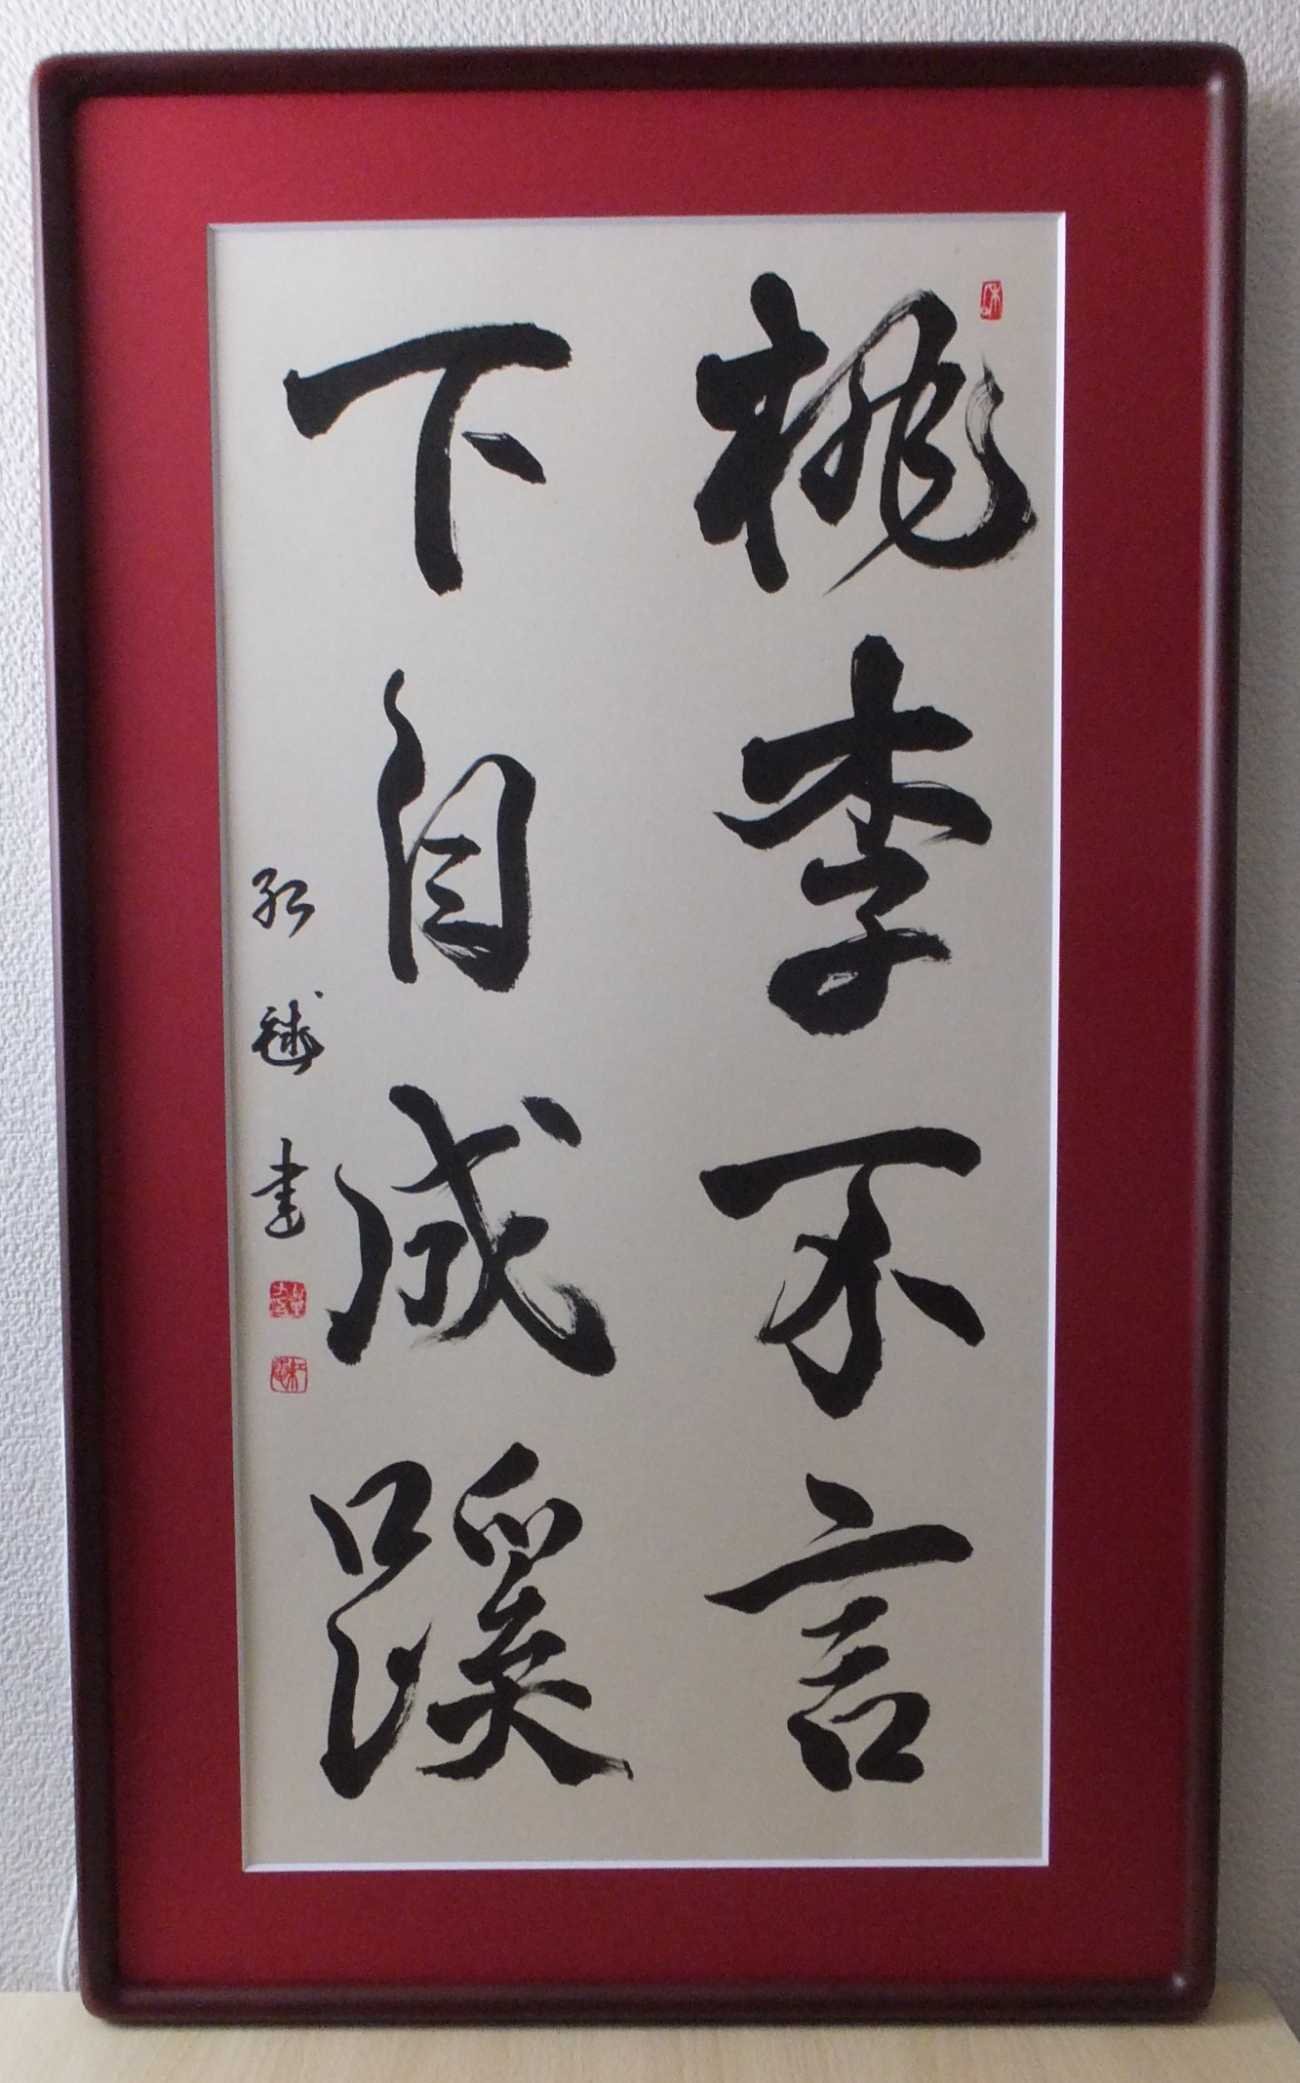 桃李不言
下自成蹊
書